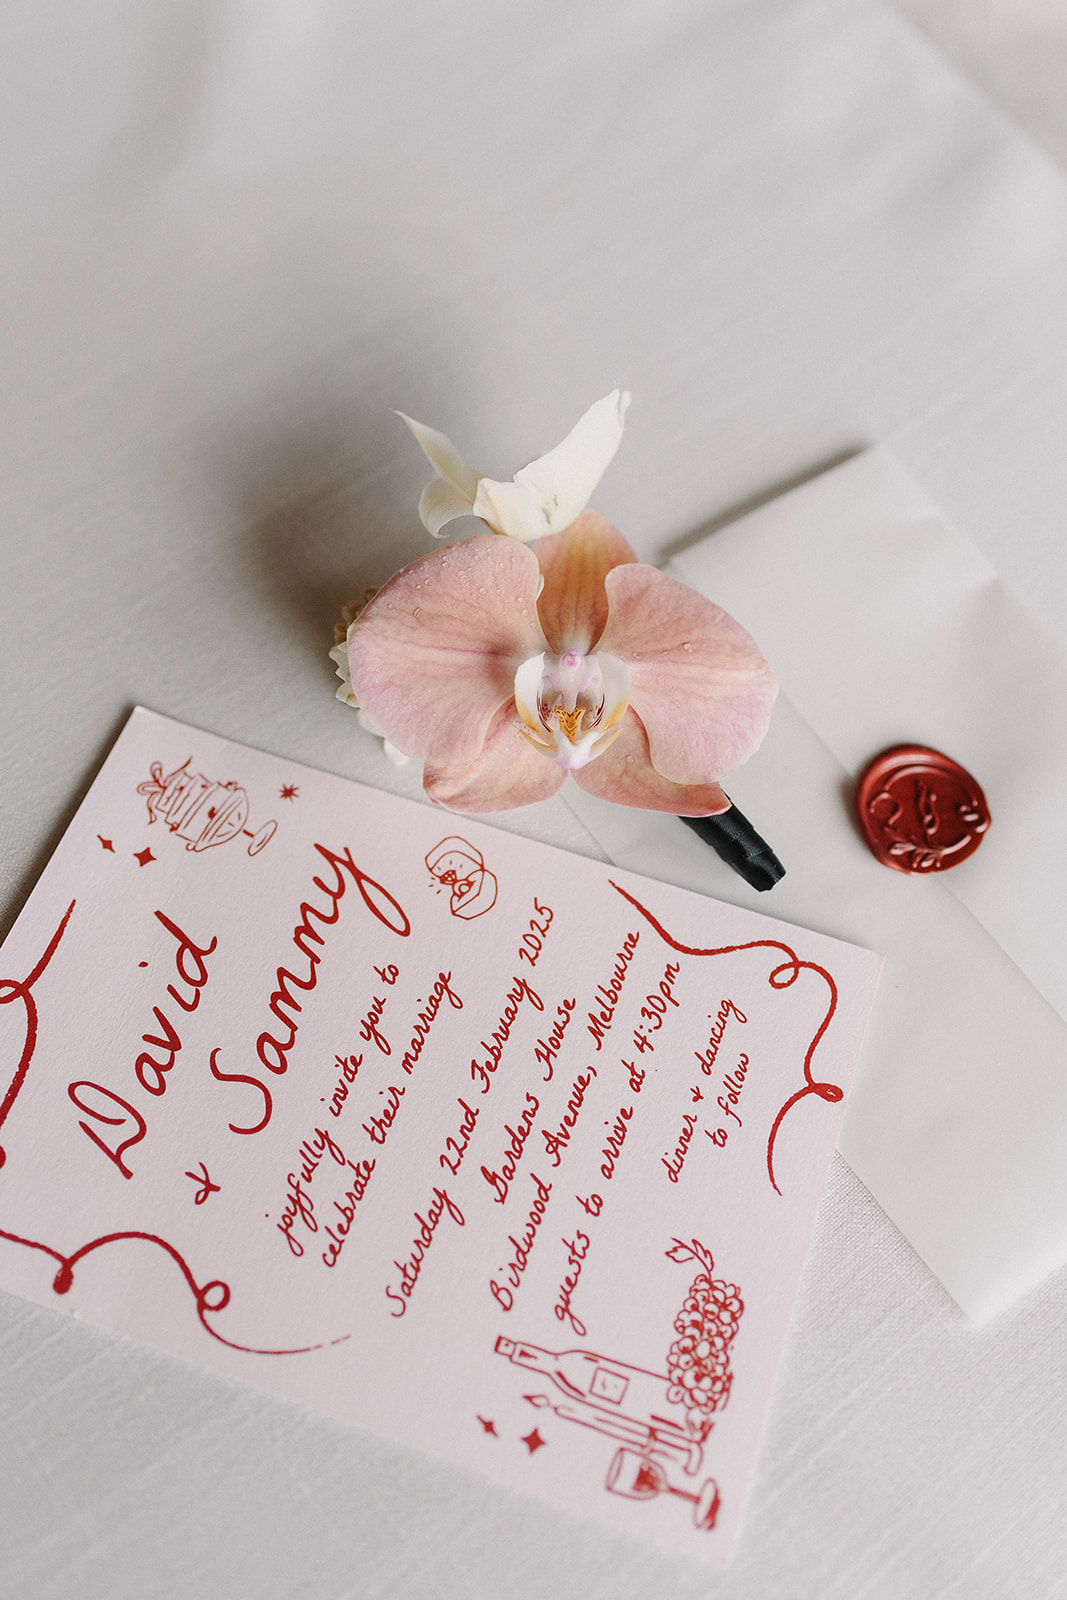 David
& Sammy
joyfully invite you to
celebrate their marriage
Saturday 22nd February 2025
Gardens House
Birdwood Avenue, Melbourne
guests to arrive at 4:30pm
dinner & dancing
to follow